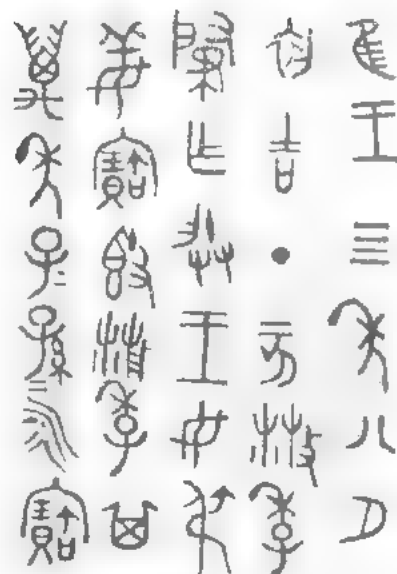 隹王四年八月
初吉丁亥散季
肇乍朕王母弔
姜寶𣪘散季其
萬年子=孫=永寶